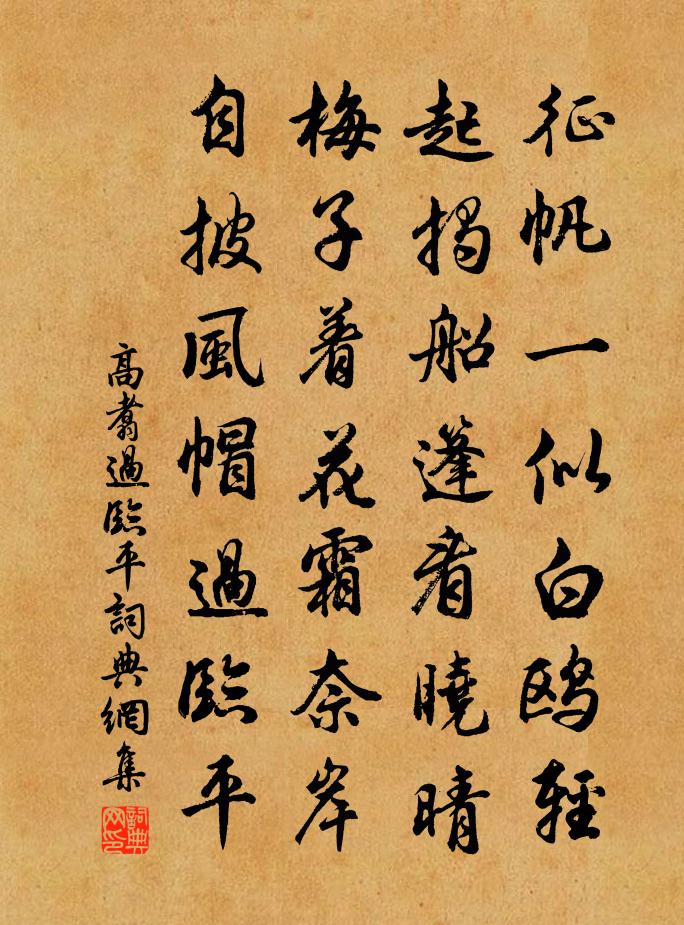 征帆一似白鸥輕
起揭船蓬看曉晴
梅子着花霜奈岸
自披風帽過臨平
高翥過臨平詞典網集
詞典网印